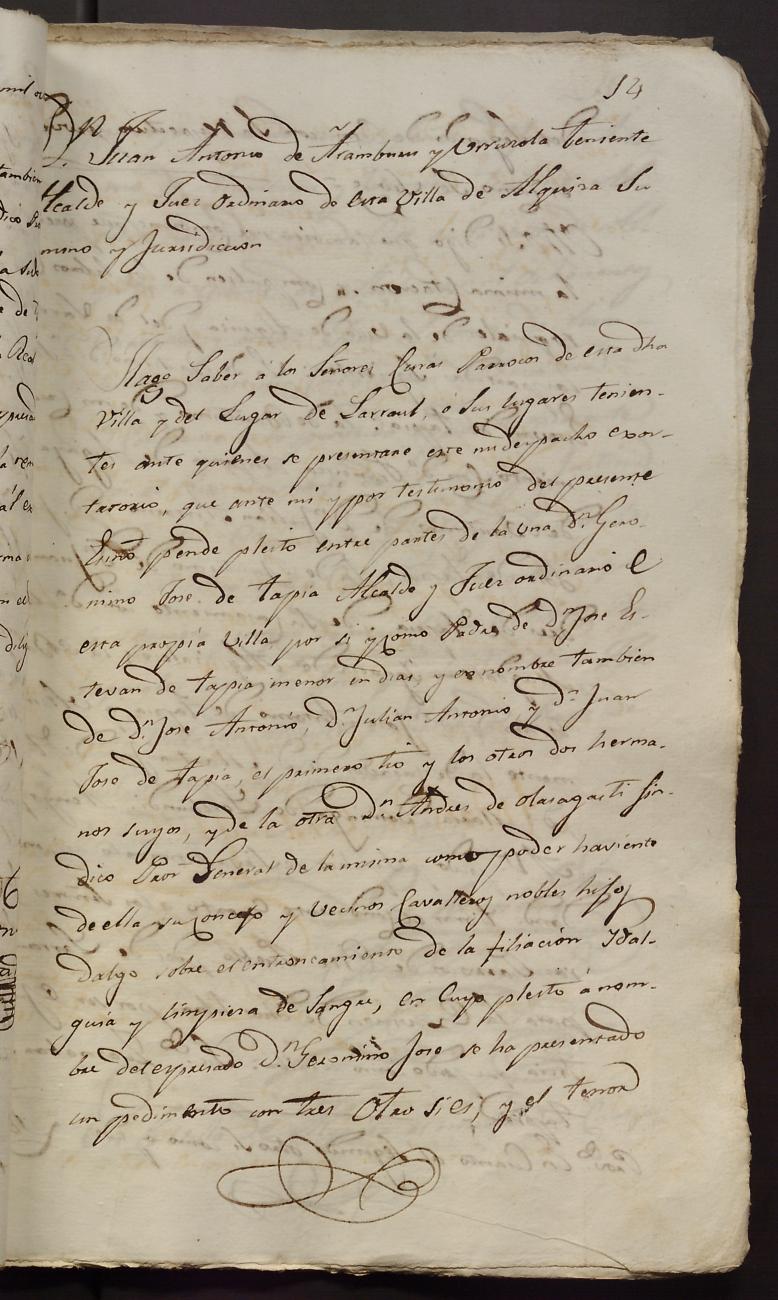 14
Dn Juan Antonio de Aramburu y Urruzola theniente
Alcalde y Juez ordinario de esta Villa de Alquiza Su
mino y Jurisdiccion
Hago Saber á los Señores Curas Parrocos de esta dha
Villa y del Lugar de Larraul, ó sus lugares tenien-
tes ante quienes se presentare este mi despacho exor-
tatorio, que ante mi y por testimonio del presente
Esno pende pleito entre partes de la una Dn Gero-
nimo Jose de tapia Alcalde y Juez ordinario
esta propia Villa por si y como Padre de Dn Jose Es-
tevan de tapia menor en dias, y en nombre tambien
de Dn Jose Antonio, Dn Julian Antonio y Dn Juan
Jose de tapia, el primero tio y los otros dos herma-
nos suyos, y de la otra Dn Andres de olasagasti Sin-
dico Pror General de la misma como poder haviente
de ella su concejo y Vecinos Cavalleros nobles hijos
dalgo sobre el entroncamiento de la filiación Ydal-
guia y limpieza de Sangre, en Cuyo pleito á nom-
bre del expresado Dn Geronimo Jose se ha presentado
un pedimento con tres Otro sies, y el tenor